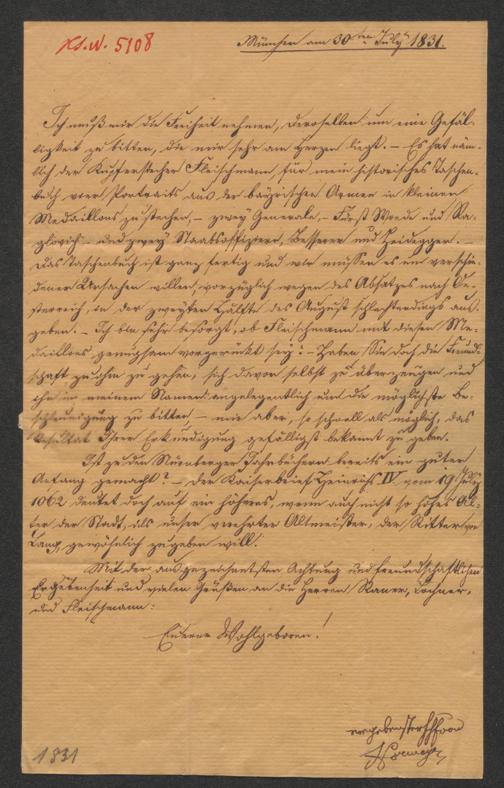 Hs.N. 5108
München am 30ten July 1831.
Ich muß mir die Freiheit nehmen, denselben um eine Gefäl-
ligkeit zu bitten, die mir sehr am Herzen liegt. – Es hat näm-
lich der Kupferstecher Fleischmann, für mein historisches Taschen-
buch vier Portraits aus der bayrischen Armee in kleinen
Medaillons zu stechen, – zwey Generale, – Fürst Wrede und Ra-
glovich – und zwey Staatsoffiziere, Besserer und Heideggen. –
Das Taschenbuch ist ganz fertig und wir müssen es um verschie-
dener Ursachen willen, vorzüglich wegen des Absatzes nach Oe-
sterreich, in der zweyten Hälfte des August schlechterdings aus-
geben. – Ich bin sehr besorgt, ob Fleischmann mit diesen Me-
daillons genugsam vorgerückt sey? – Haben Sie doch die Freund-
schaft zu ihm zu gehen, sich davon selbst zu überzeugen und
ihn in meinem Namen angelegentlich um die möglichste Be-
schleunigung zu bitten – mir aber, so schnell als möglich, das
Resultat Ihrer Erkundigung gefälligst bekannt zu geben.
Ist zu den Nürnberger Jahrbüchern bereits ein guter
Anfang gemacht? – Der Kaiserbrief Heinrichs IV vom 19 July
1062 deutet doch auf ein höheres, wenn auch nicht so hohes Al-
ter der Stadt, als unser verehrter Altmeister, der Ritter von
Lang, gewöhnlich zugeben will.
Mit der ausgezeichnetsten Achtung und freundschaftlichen
Ergebenheit und vielen Grüßen an die Herren Rauer, Lochner,
und Fleischmann:
Euerer Wohlgeboren!
ergebenster
Hormayr
1831